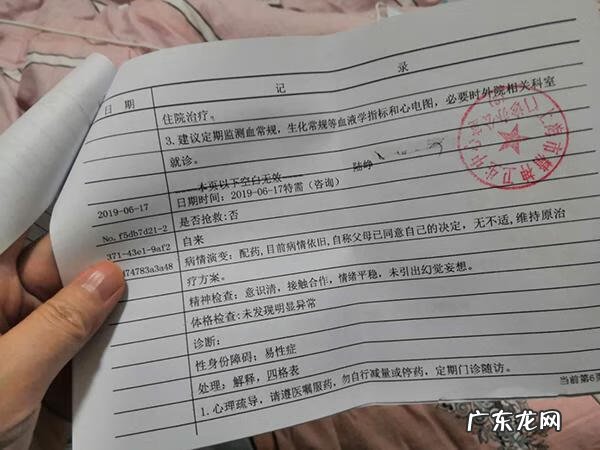 日期 记录
住院治疗。
3.建议定期监测血常规，生化常规等血液学指标和心电图，必要时外院相关科室
就诊。
本页以下空白无效
陆峥
2019-06-17 日期时间：2019-06-17特需（咨询）
No.f5db7d21-2 是否抢救:否
371-43e1-9af2 自来
74783a3a48 病情演变：配药,目前病情依旧,自称父母已同意自己的决定，无不适,维持原治
疗方案。
精神检查：意识清，接触合作，情绪平稳，未引出幻觉妄想。
体格检查:未发现明显异常
诊断：
性身份障碍；易性症
处理；解释，四格表
1.心理疏导，请遵医嘱服药，勿自行减量或停药，定期门诊随访。
当前第6页
市精神卫生中心
广东龙网